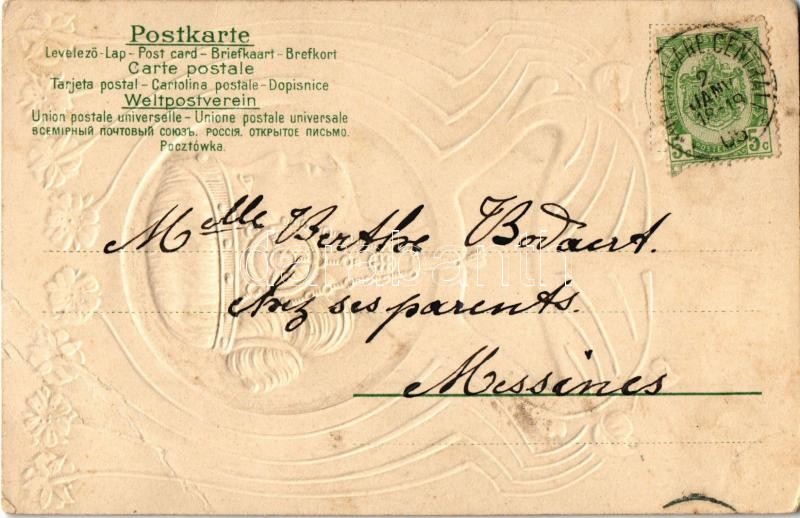 Postkarte
Levelező-Lap - Post card - Briefkaart - Brefkort
Carte postale
Tarjeta postal - Cartolina postale - Dopisnice
Weltpostverein
Union postale universelle - Unione postale universale
ВСЕМІРНЫЙ ПОЧТОВЫЙ СОЮЗЪ. РОССІЯ. ОТКРЫТОЕ ПИСЬМО.
Pocztówka.
CENTRALE
2
JANV
5c 5c
Melle Berthe Bodaert.
chez ses parents.
Messines